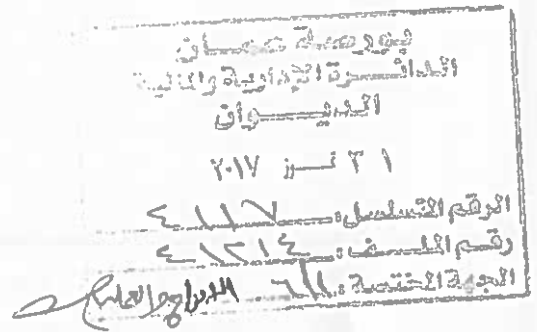 بورصة عمان
الدائرة الإدارية والمالية
الديوان
٣١ تموز ٢٠١٧
الرقم المتسلسل: ٤١١٧
رقم الملف: ٤١٢١٤
الجهة المختصة: